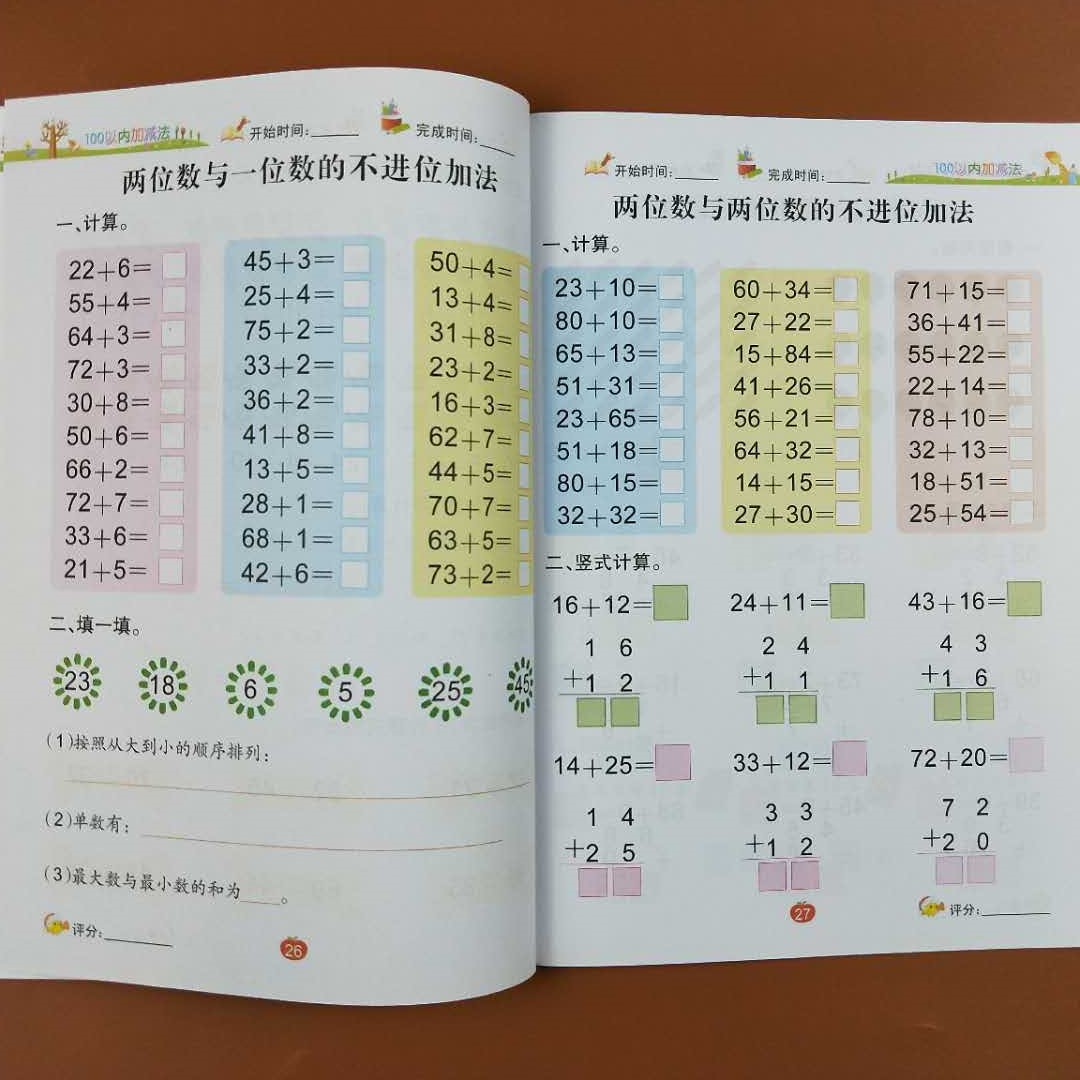 100以内加减法 开始时间:______ 完成时间:______
两位数与一位数的不进位加法
一、计算。
22+6= 45+3= 50+4=
55+4= 25+4= 13+4=
64+3= 75+2= 31+8=
72+3= 33+2= 23+2=
30+8= 36+2= 16+3=
50+6= 41+8= 62+7=
66+2= 13+5= 44+5=
72+7= 28+1= 70+7=
33+6= 68+1= 63+5=
21+5= 42+6= 73+2=
二、填一填。
23 18 6 5 25 45
(1)按照从大到小的顺序排列:
(2)单数有:
(3)最大数与最小数的和为____。
评分:________
26
开始时间:______ 完成时间:______ 100以内加减法
两位数与两位数的不进位加法
一、计算。
23+10= 60+34= 71+15=
80+10= 27+22= 36+41=
65+13= 15+84= 55+22=
51+31= 41+26= 22+14=
23+65= 56+21= 78+10=
51+18= 64+32= 32+13=
80+15= 14+15= 18+51=
32+32= 27+30= 25+54=
二、竖式计算。
16+12= 24+11= 43+16=
1 6 2 4 4 3
+1 2 +1 1 +1 6
14+25= 33+12= 72+20=
1 4 3 3 7 2
+2 5 +1 2 +2 0
27
评分:________